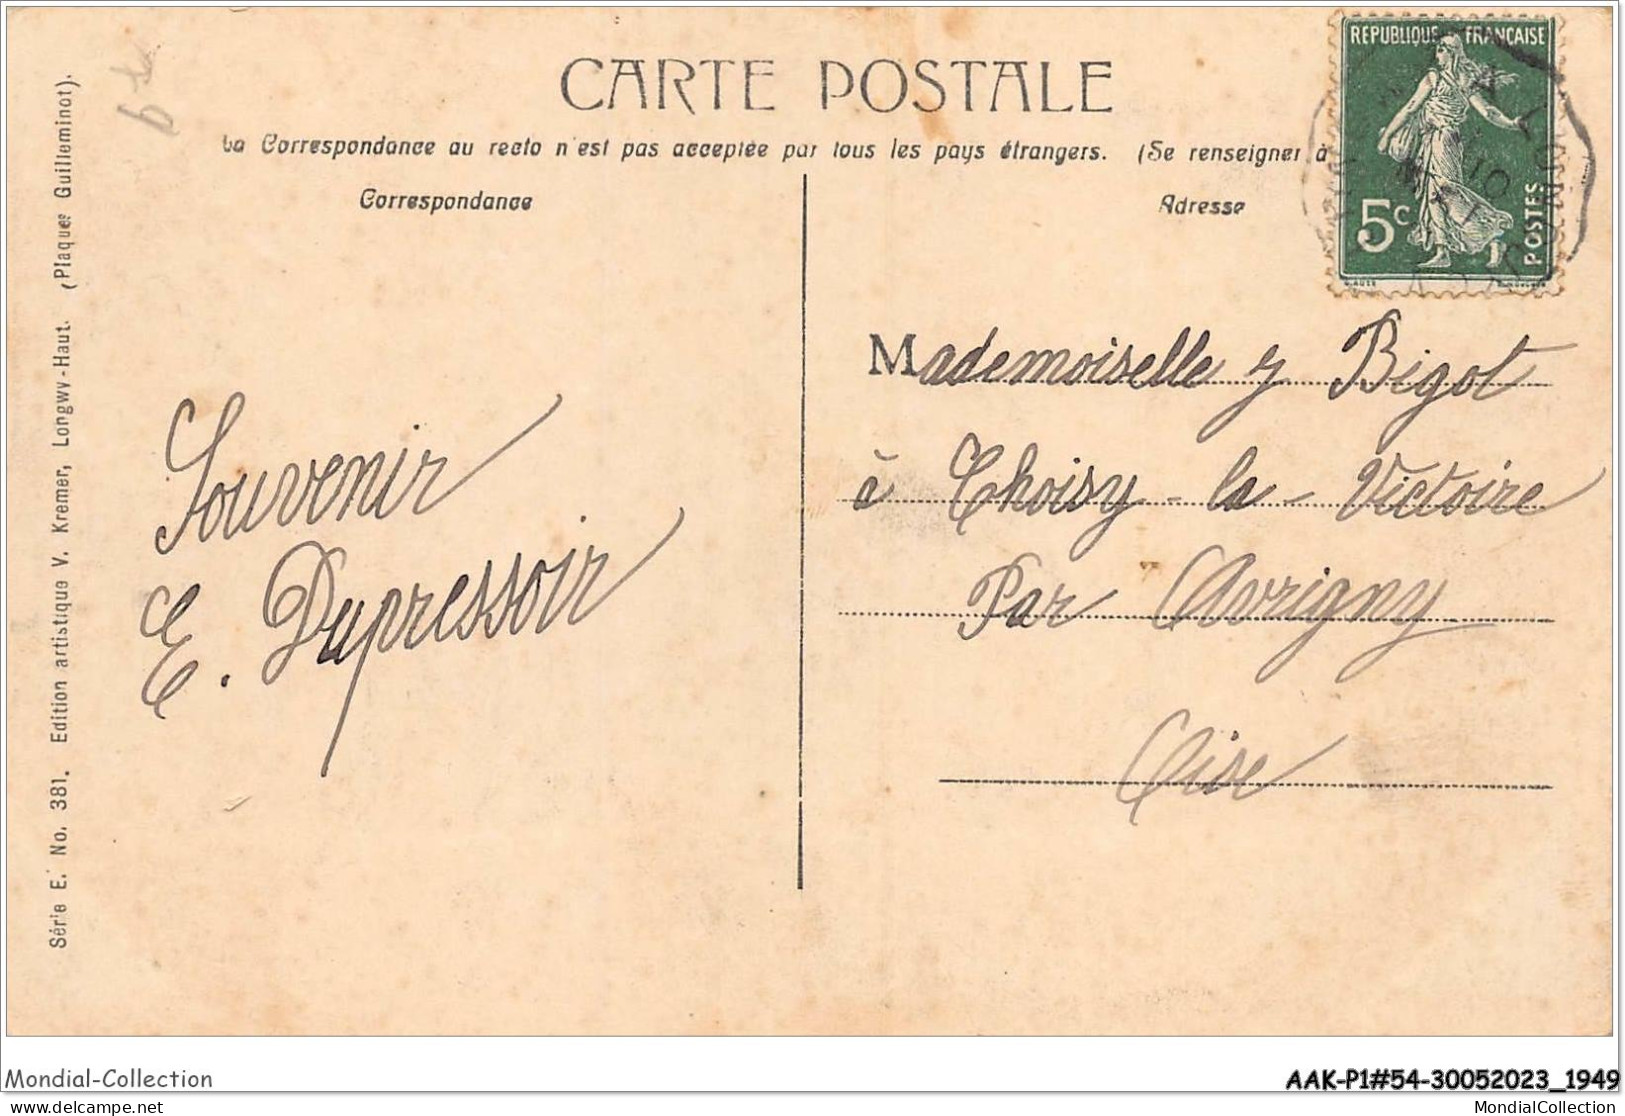 CARTE POSTALE
La Correspondance au recto n'est pas acceptée par tous les pays étrangers. (Se renseigner à
Correspondance
Adresse
REPUBLIQUE FRANÇAISE
5c
POSTES
Souvenir
E. Dupressoir
Mademoiselle y Bigot
à Choisy-la-Victoire
Par Avrigny
Oise
Série E. No. 381. Edition artistique V. Kremer, Longwy-Haut. (Plaques Guilleminot).
Mondial-Collection
AAK-P1#54-30052023_1949
delcampe.net
MondialCollection